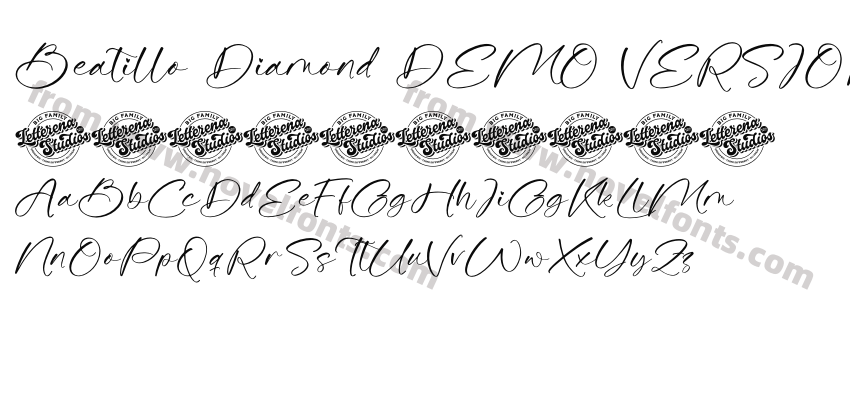 Beatillo Diamond DEMO VERSION
BIG FAMILY Letterena Studios BIG FAMILY Letterena Studios BIG FAMILY Letterena Studios BIG FAMILY Letterena Studios BIG FAMILY Letterena Studios BIG FAMILY Letterena Studios BIG FAMILY Letterena Studios BIG FAMILY Letterena Studios BIG FAMILY Letterena Studios BIG FAMILY Letterena Studios
AaBbCcDdEeFfGgHhIiJjKkLlMm
NnOoPpQqRrSsTtUuVvWwXxYyZz
from www.novelfonts.com
from www.novelfonts.com